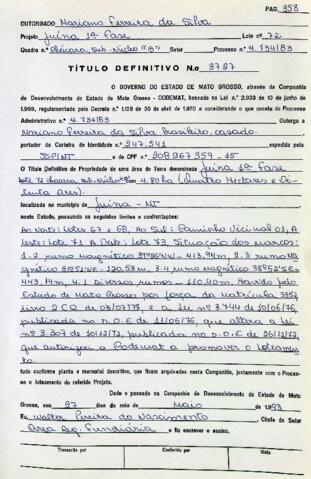 PAG. 358
OUTORGADO Mariano Ferreira da Silva
Projeto Juina 1ª Fase Lote nº 72
Quadra n.º Chácara, sub-Núcleo "B" Setor Processo n.º 4.734/83
TÍTULO DEFINITIVO N.o 3727
O GOVERNO DO ESTADO DE MATO GROSSO, através da Companhia
de Desenvolvimento do Estado de Mato Grosso - CODEMAT, baseado na Lei n.º 2.933 de 10 de junho de
1969, regulamentado pelo Decreto n.º 1.138 de 30 de abril de 1970 e considerando o que consta do Processo
Administrativo n.º 4.734/83 Outorga a
Mariano Ferreira da Silva brasileiro, casado.
portador da Carteira de Identidade n.º 247.541 expedida pela
e do CPF n.º 208267359-15
O Título Definitivo de Propriedade de uma área de Terra denominada Juina 1ª Fase
Lote 72 chácara, sub-núcleo "B" com 4.80 ha (Quatro Hectares e Oi-
tenta Ares).
localizada no município de Juina - MT
neste Estado, possuindo os seguintes limites e confrontações:
Ao Norte: Lotes 67 e 68, Ao Sul: Caminho Vicinal 01, A
Leste: Lote 71 A Oeste: Lote 73, Situação dos marcos:
1-2 rumo magnético NW - 413,94m, 2-3 rumo Ma
gnético NE - 120,53m, 3-4 rumo magnético SE -
443,14m, 4-1 Diversos rumos - 110,40m. Havido pelo
Estado de Mato Grosso por força da matrícula
livro 2 de 03/07/78, e a Lei nº 3.744 de 10/06/76,
publicada no D.O.E de 11/06/76, que altera a Lei
nº 3.307 de 10/12/72, publicada no D.O.E de 26/12/72,
que autorizou a Codemat a promover o loteamen
to.
tudo conforme planta e memorial descritivo, que ficam arquivados nesta Companhia, juntamente com o Pro-
cesso e loteamento do referido Projeto.
Dado e passado na Companhia de Desenvolvimento do Estado de Mato
Grosso, aos 27 dias do mês de Maio de 1993
Eu, Walter Pereira do Nascimento, Chefe do Setor
Área Reg. Fundiária o fiz escrever e assino.
Transcrito por Conferido por Visto